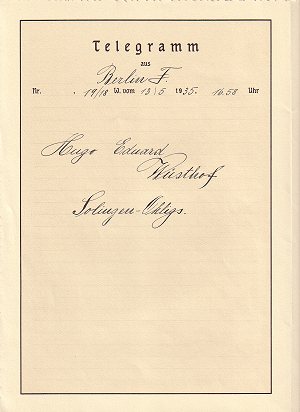 Telegramm
aus
Berlin F.
Nr. 19/18 W. vom 13/5 1935. 16 58 Uhr
Hugo Eduard
Wüsthof
Solingen-Ohligs.